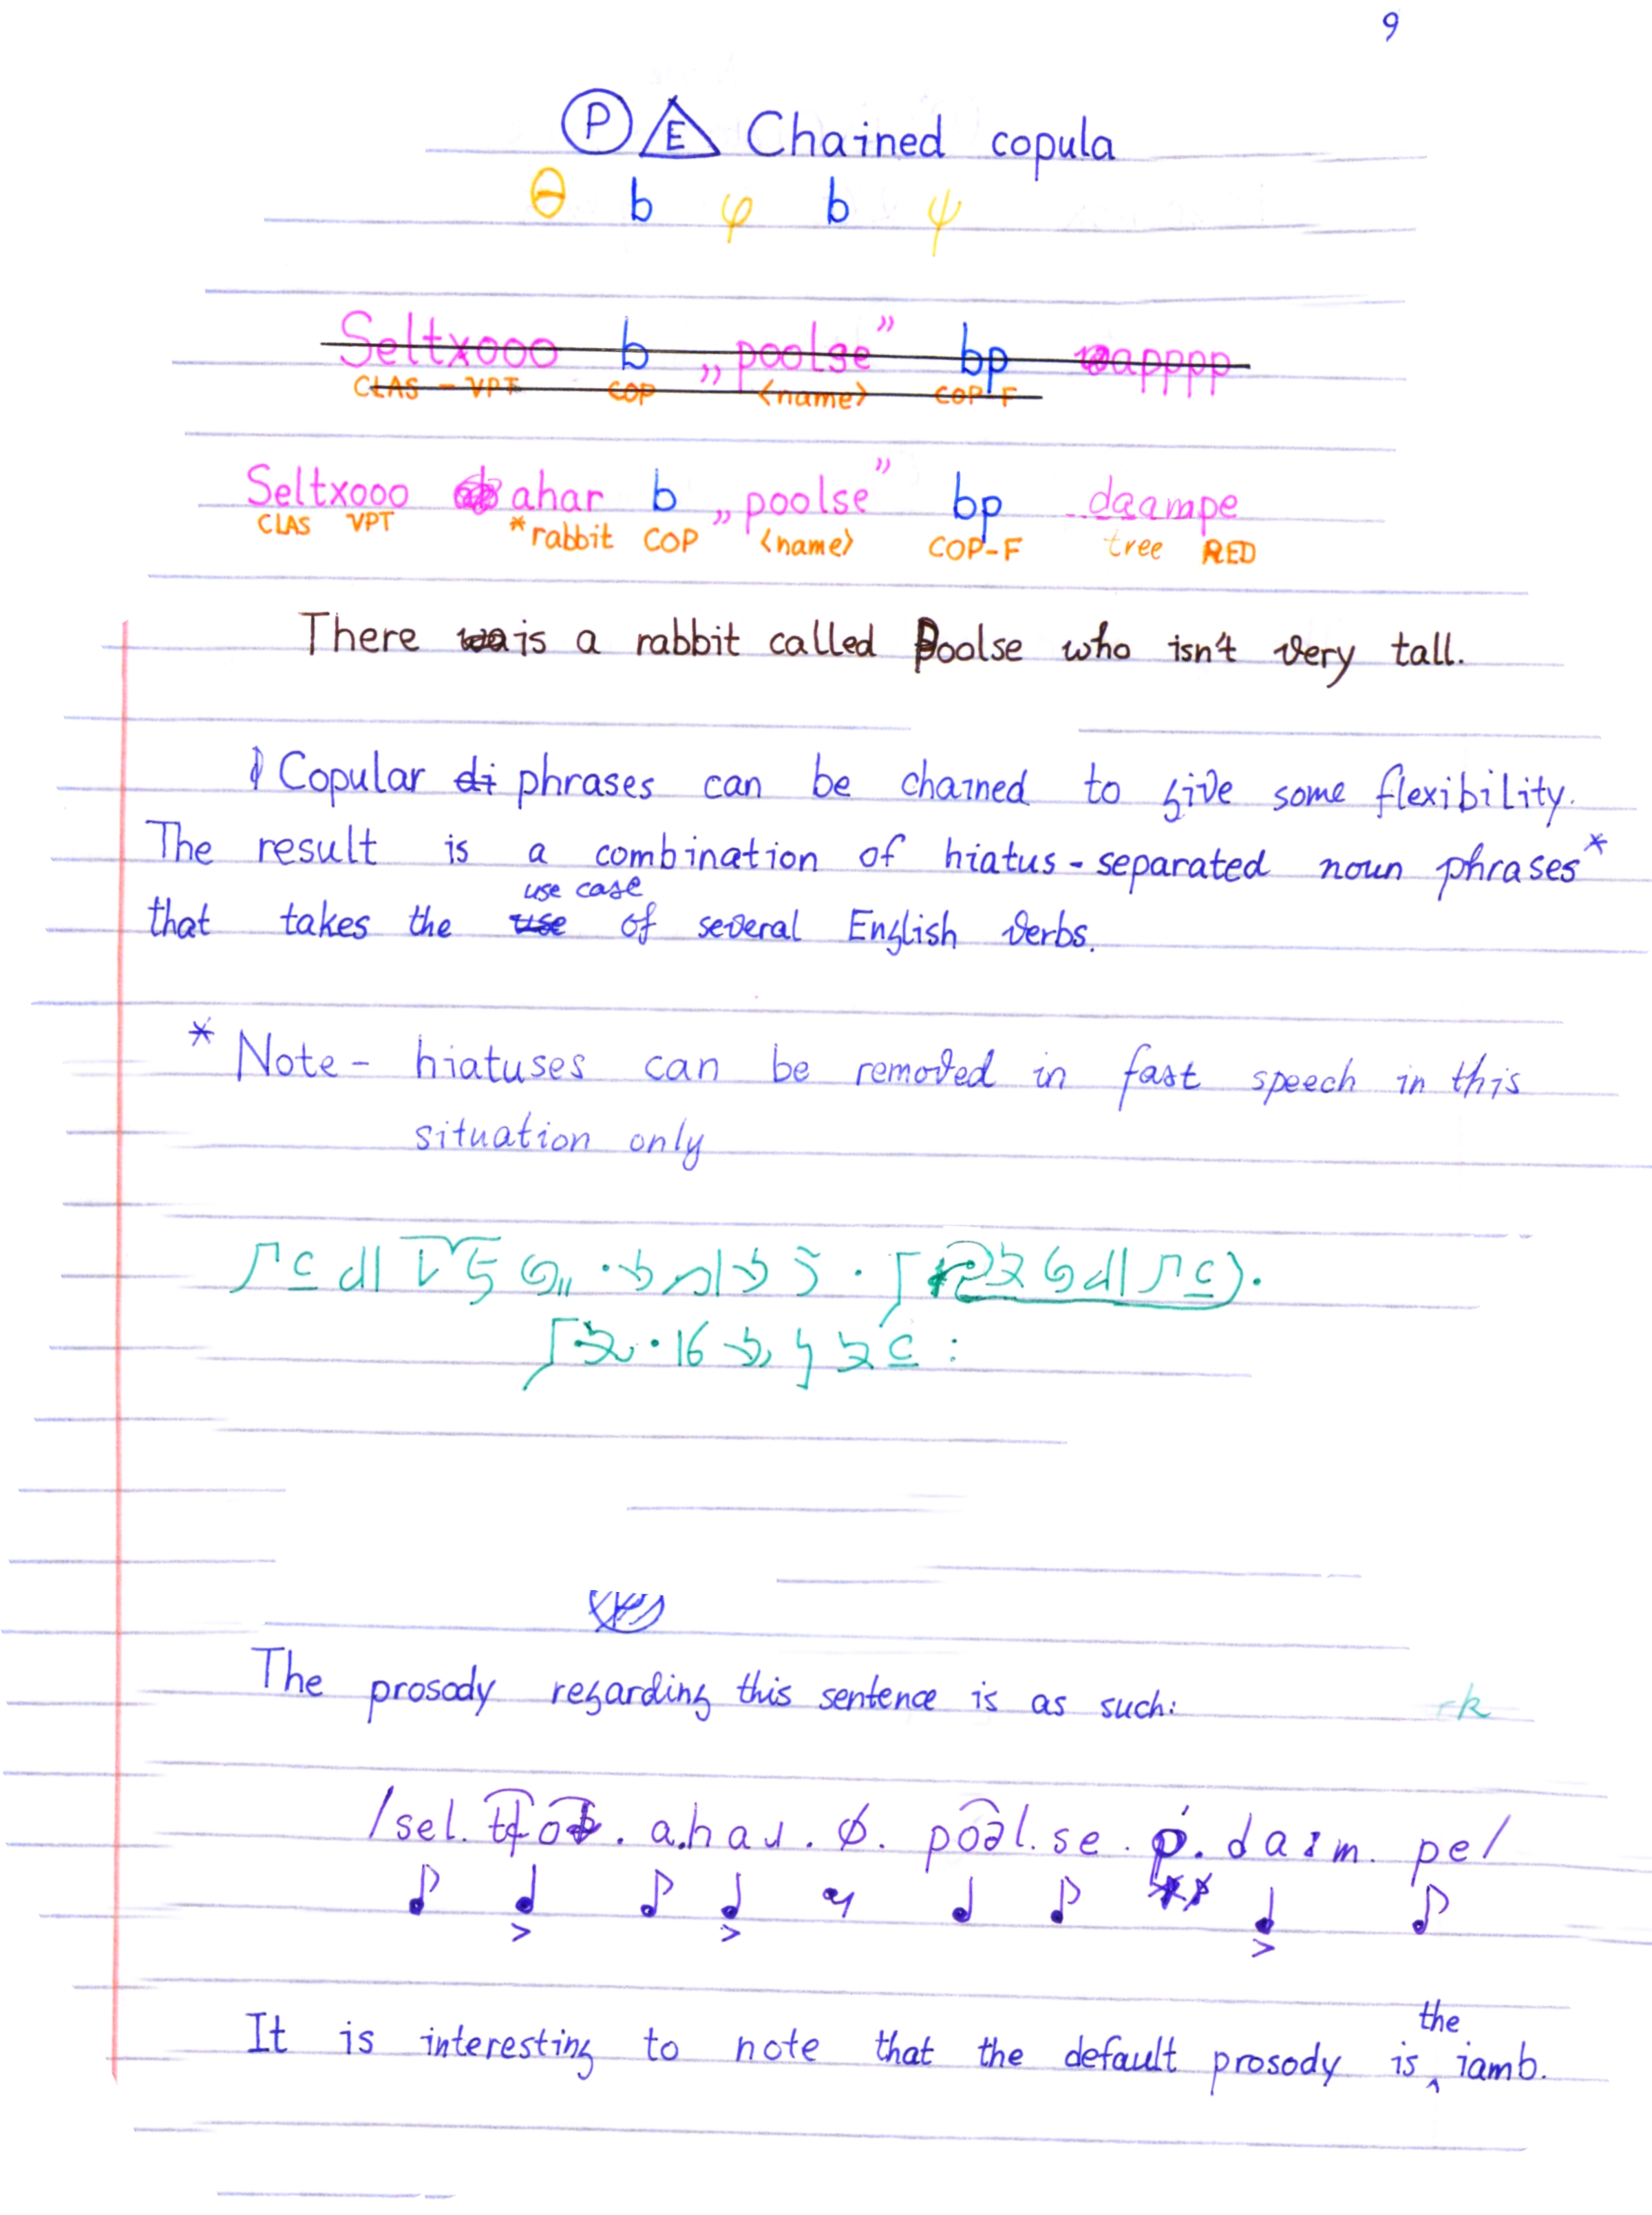 9
P E Chained copula
θ b φ b ψ
Seltxooo b „poolse” bp apppp
CLAS - VPT COP <name> COP-F
Seltxooo ahar b „poolse” bp daampe
CLAS VPT *rabbit COP <name> COP-F tree RED
There is a rabbit called Poolse who isn't very tall.
Copular di phrases can be chained to give some flexibility.
The result is a combination of hiatus-separated noun phrases*
use case
that takes the use of several English verbs.
* Note - hiatuses can be removed in fast speech in this
situation only
The prosody regarding this sentence is as such:
/sel. . a.hau . ø. . se . p. . pe/
the
It is interesting to note that the default prosody is ^ iamb.